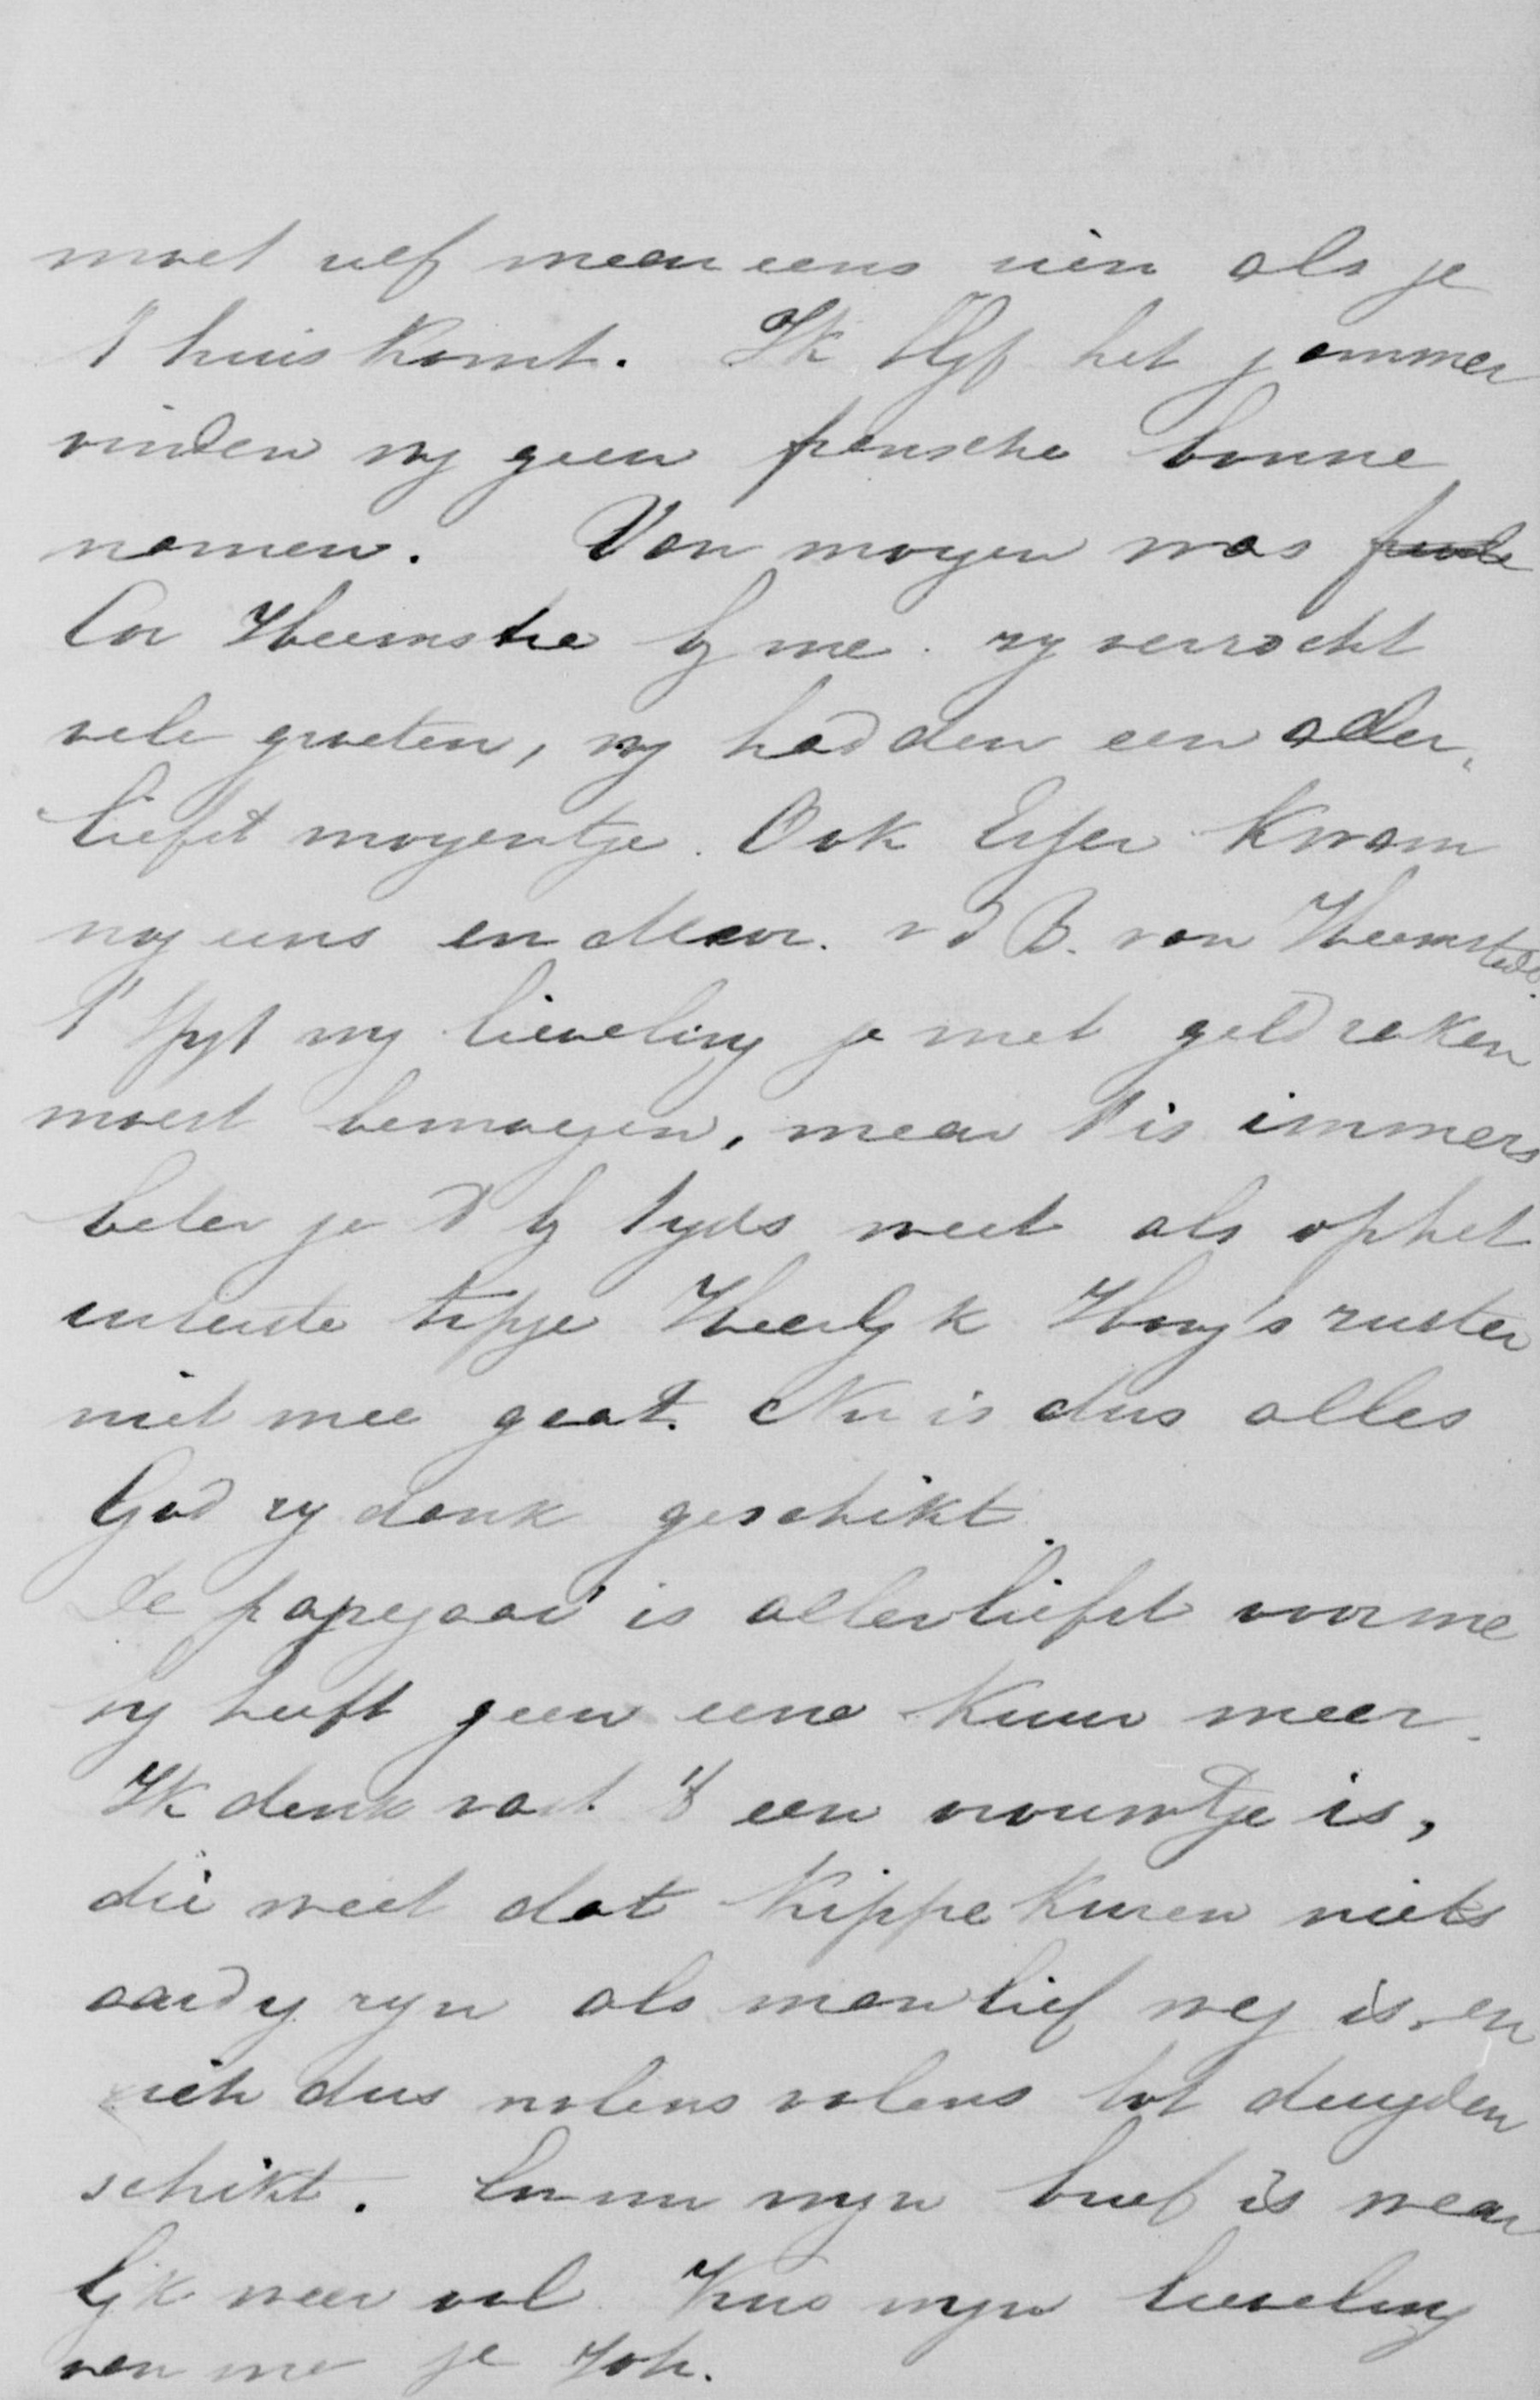 moet zelf maar eens zien als je
t huis komt. Ik blyf het jammer
vinden wy geen fransche bonne
namen. Van morgen was
Cor Heemstra by me. zy verzocht
vele groeten, wy hadden een aller,
liefst morgentje. Ook kwam
nog eens en Mevr. v d B. van Heemstede.
t' spyt my lieveling je met geld zaken
moest bemoeyen, maar t is immers
beter je t by tyds weet als op het
uiterste tipje Heerlyk
niet mee gaat. Nu is dus alles
God zy dank geschikt.
De papegaai is allerliefst voor me
hy heeft geen eene kuur meer.
Ik denk vast 't een vrouwtje is,
die weet dat kippekuren niets
aardig zyn als manlief weg is en
zich dus nolens volens tot deugden
schikt. En nu myn brief is waar
lyk weer vol. Kus myn lieveling
van me je Joh.